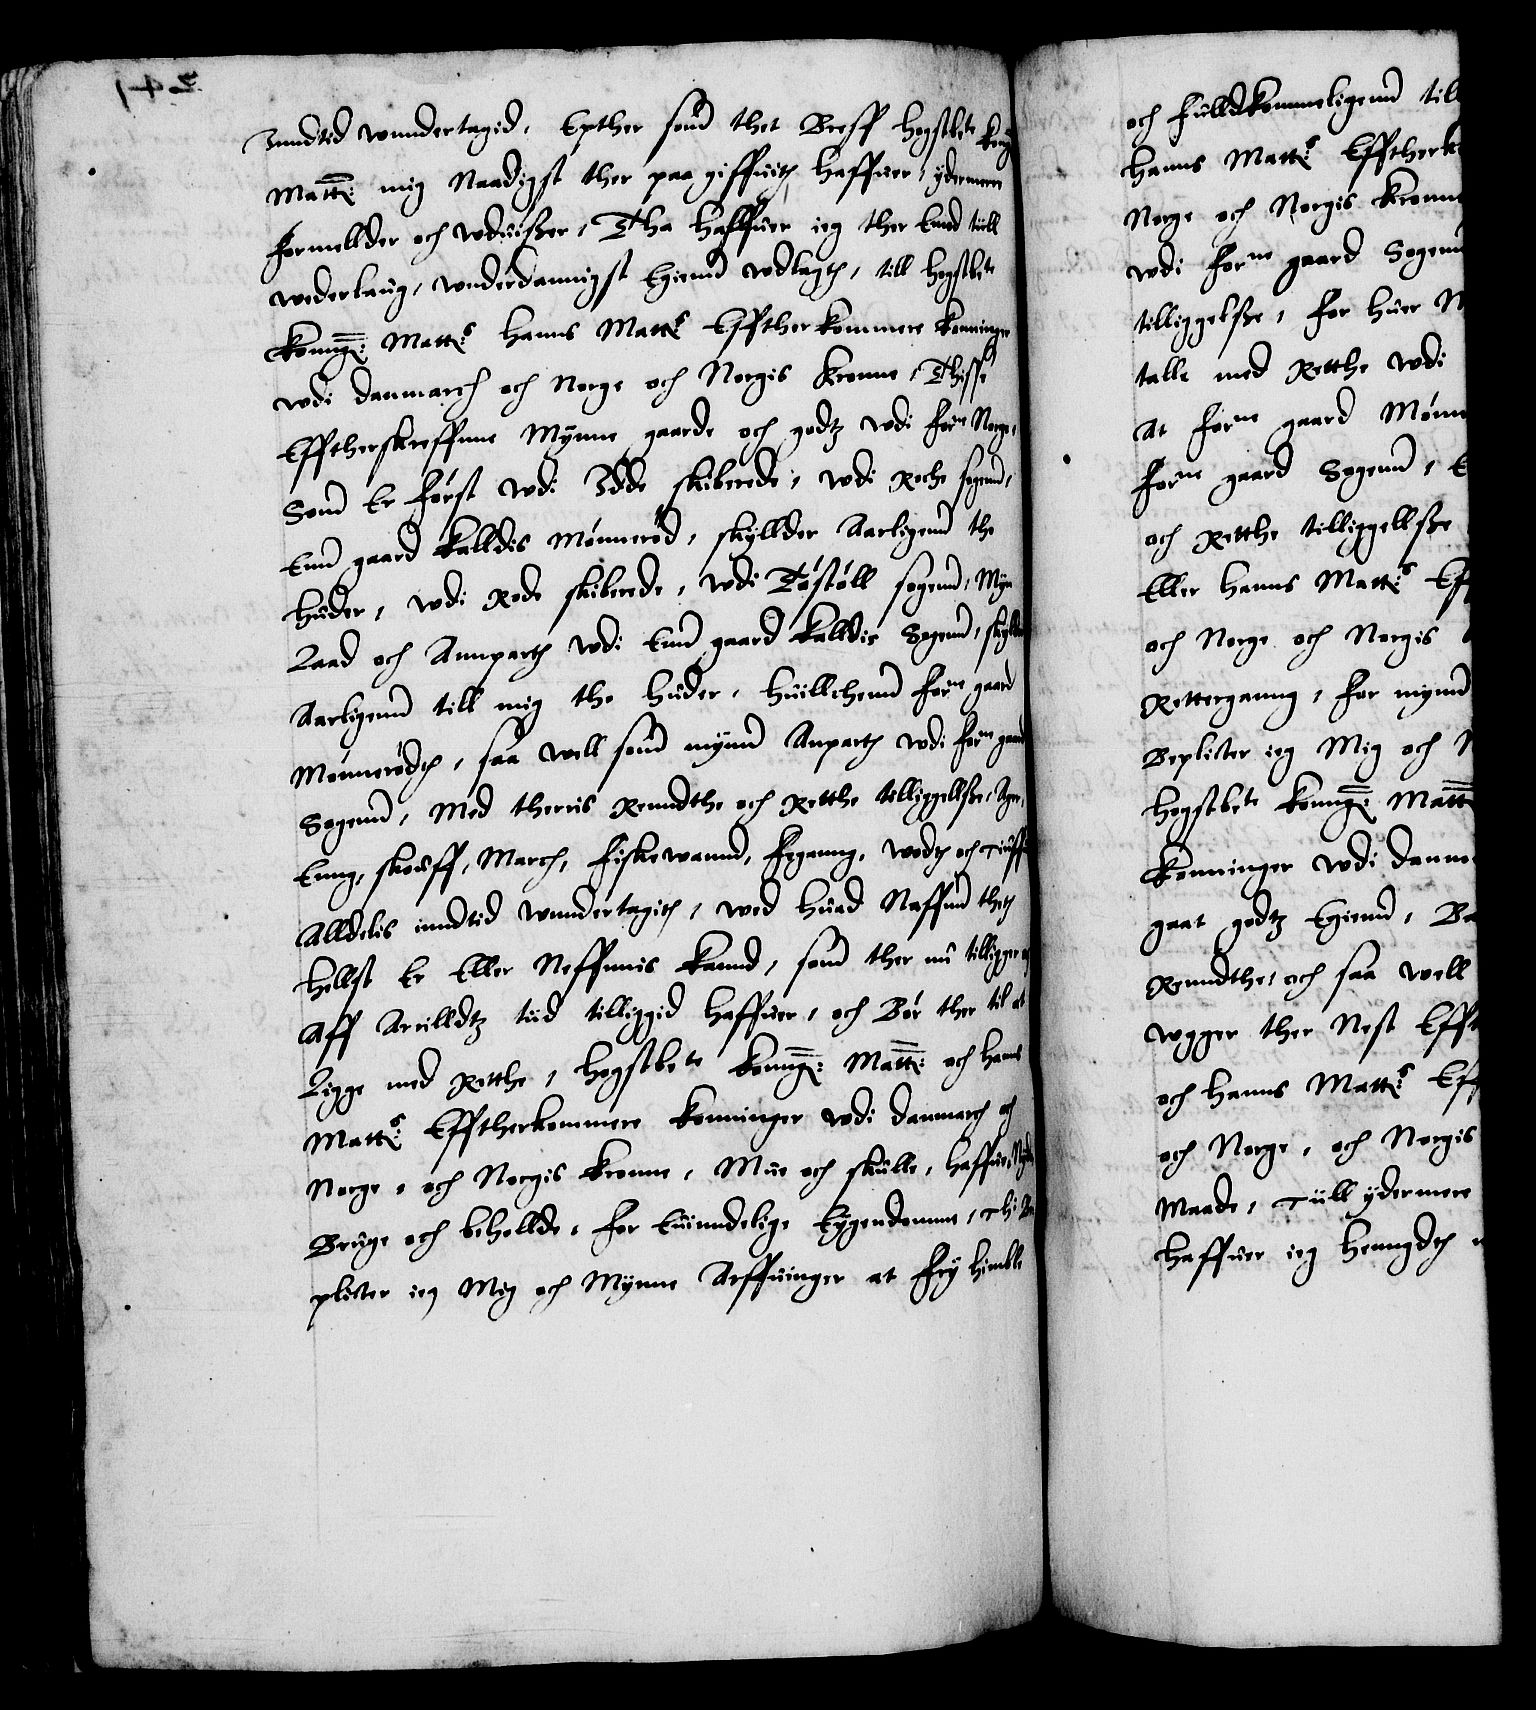 Inndtid wunndertagid, Epther som thet Breff hogstbete Kong
Matt: mig Naadigst ther paa giffuith haffuer, ydermere
formellder och wduißer, Tha haffuer ieg ther Emod till
wederlaug, wnderdannigst Egiend wdlagth, till hogstbete
Konng: Matts: hanns Matts: Efftherkommere Konninger
wdi danmarch och Norge och Norgis Kronne, Thisse
Efftherskreffnne Mynne gaarde och godtz wdi forne Norge,
Som Er først wdi Idde skiberede, wdi Roche sogenn,
Enn gaard kalldis Mønnerød, skyllder Aarligenn tho
huder, wdi Rode skiberede, wdi Tøstøll sogenn, Myn
Laad och Annparth wdi Enn gaard kalldis Sogenn, skyllder
Aarligenn till mig tho huder, huillchenn forne gaard
Mønnerødth, saa well som mynn Anparth wdi forne gaard
Sogenn, Med therris Renndthe och Retthe tilliggellße, Ager,
Enng, skouff, March, fiskewannd, feganng, wodth och tiufft
Alldelis inndtid wunndertagith, wed huad Naffnn theth
helst Er Eller Neffnnis kannd, som ther nu tilligger och
Aff Arrilldtz tiid tilliggid haffuer, och Bør ther til at
Ligge med Retthe, hogstbete Konng: Matt: och hans
Matts: Efftherkommere Konninger wdi danmarch och
Norge, och Norgis Kronne, Mue och skulle, haffue, Nyde
Bruge och beholde, for Euinndelige Eygendomme, Thi Be
plicter ieg Mig och Mynne Arffuinger at fry himble
och fulldkommeligenn till
hanns Matts: Effther
Norge och Norgis Kronne
wdi forne gaard Sogenn
tilliggelße, for huer
talle med Retthe wdi
At forne gaard Mønne
forne gaard Sogenn,
och Retthe tilliggellße
Eller hanns Matts: Eff
och Norge och Norgis
Retterganng, for mynn
Beplicter ieg Mig och
hogstbete Konng: Matt
Konninger wdi danne
gaat godtz Egiend,
Renndthe, och saa well
wgger ther Nest Effth
och hanns Matts: Eff
och Norge, och Norgis
Maade, Till ydermere
haffuer ieg henngdth